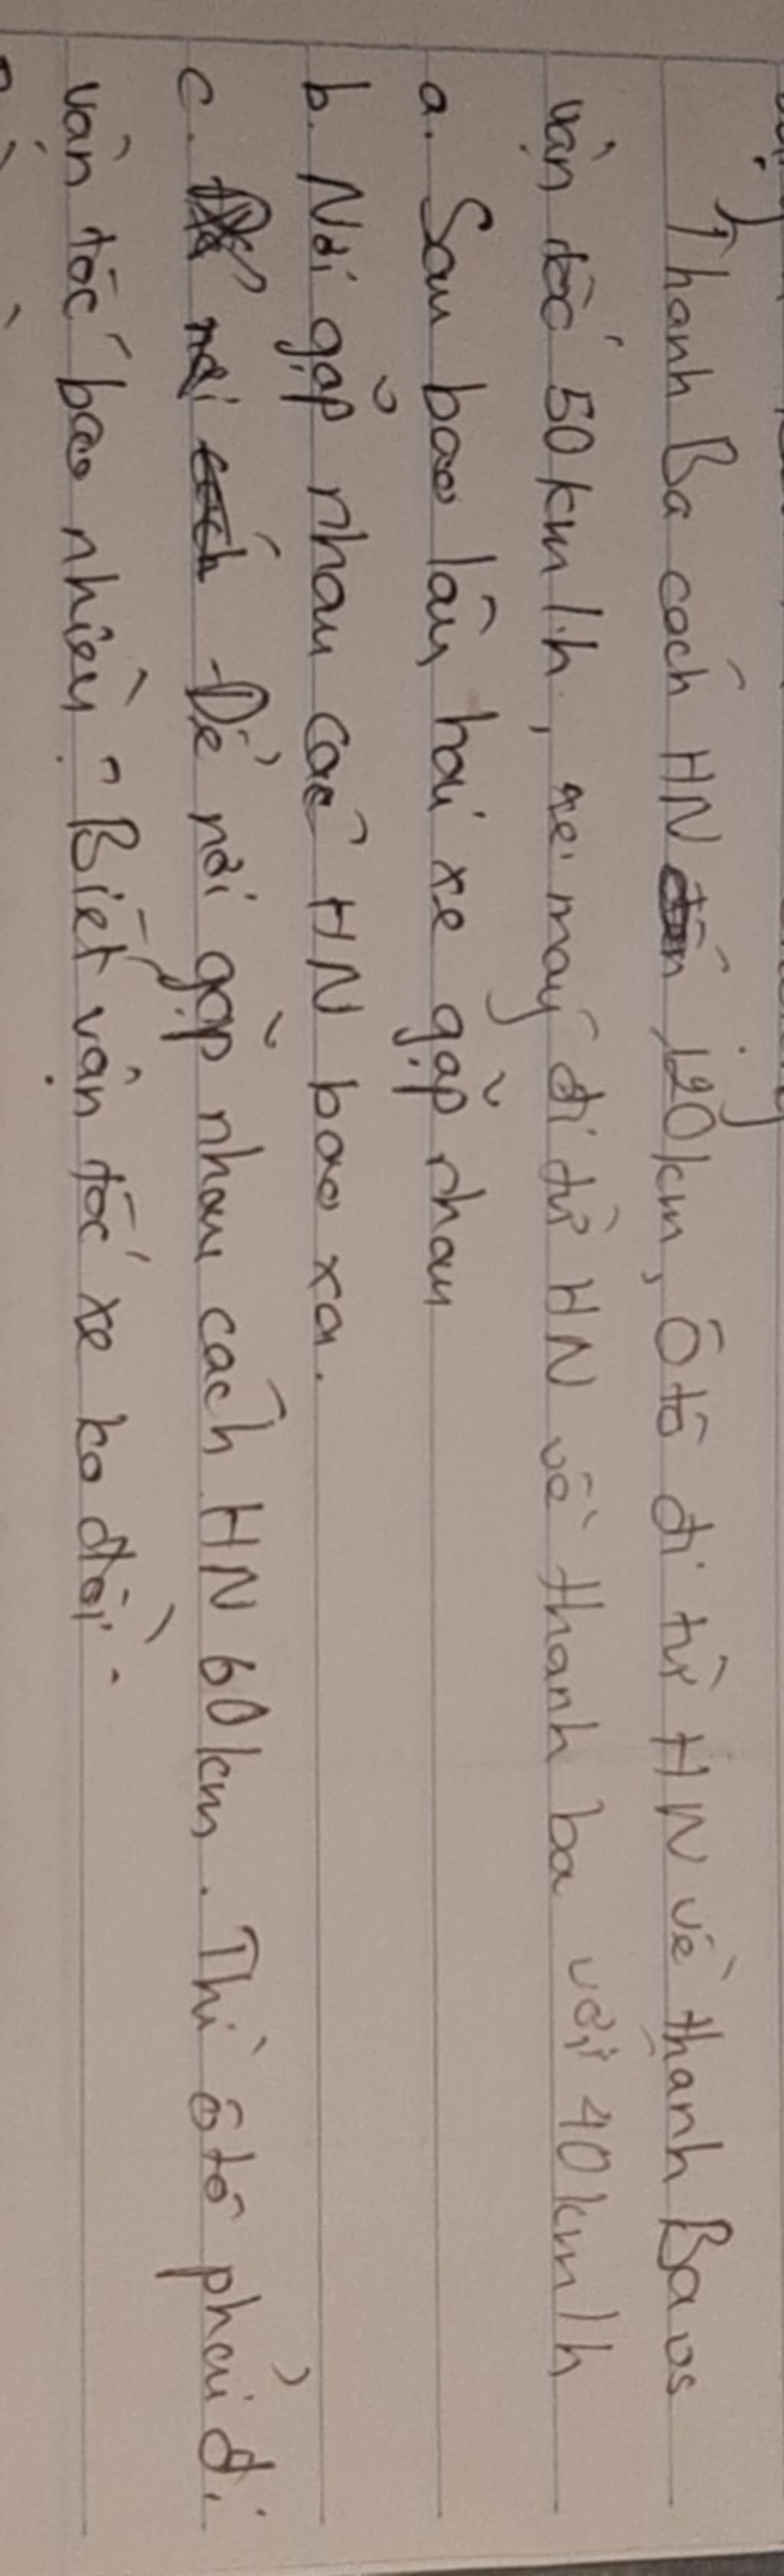 Thanh Ba cách HN 120km, Ô tô đi từ HN về thanh Ba vs
vận tốc 50km/h, xe máy đi từ HN về thanh ba với 40km/h
a. Sau bao lâu hai xe gặp nhau
b. Nơi gặp nhau các HN bao xa.
c. nơi Để nơi gặp nhau cách HN 60km. Thì ô tô phải đi
vận tốc bao nhiêu? Biết vận tốc xe ko đổi.